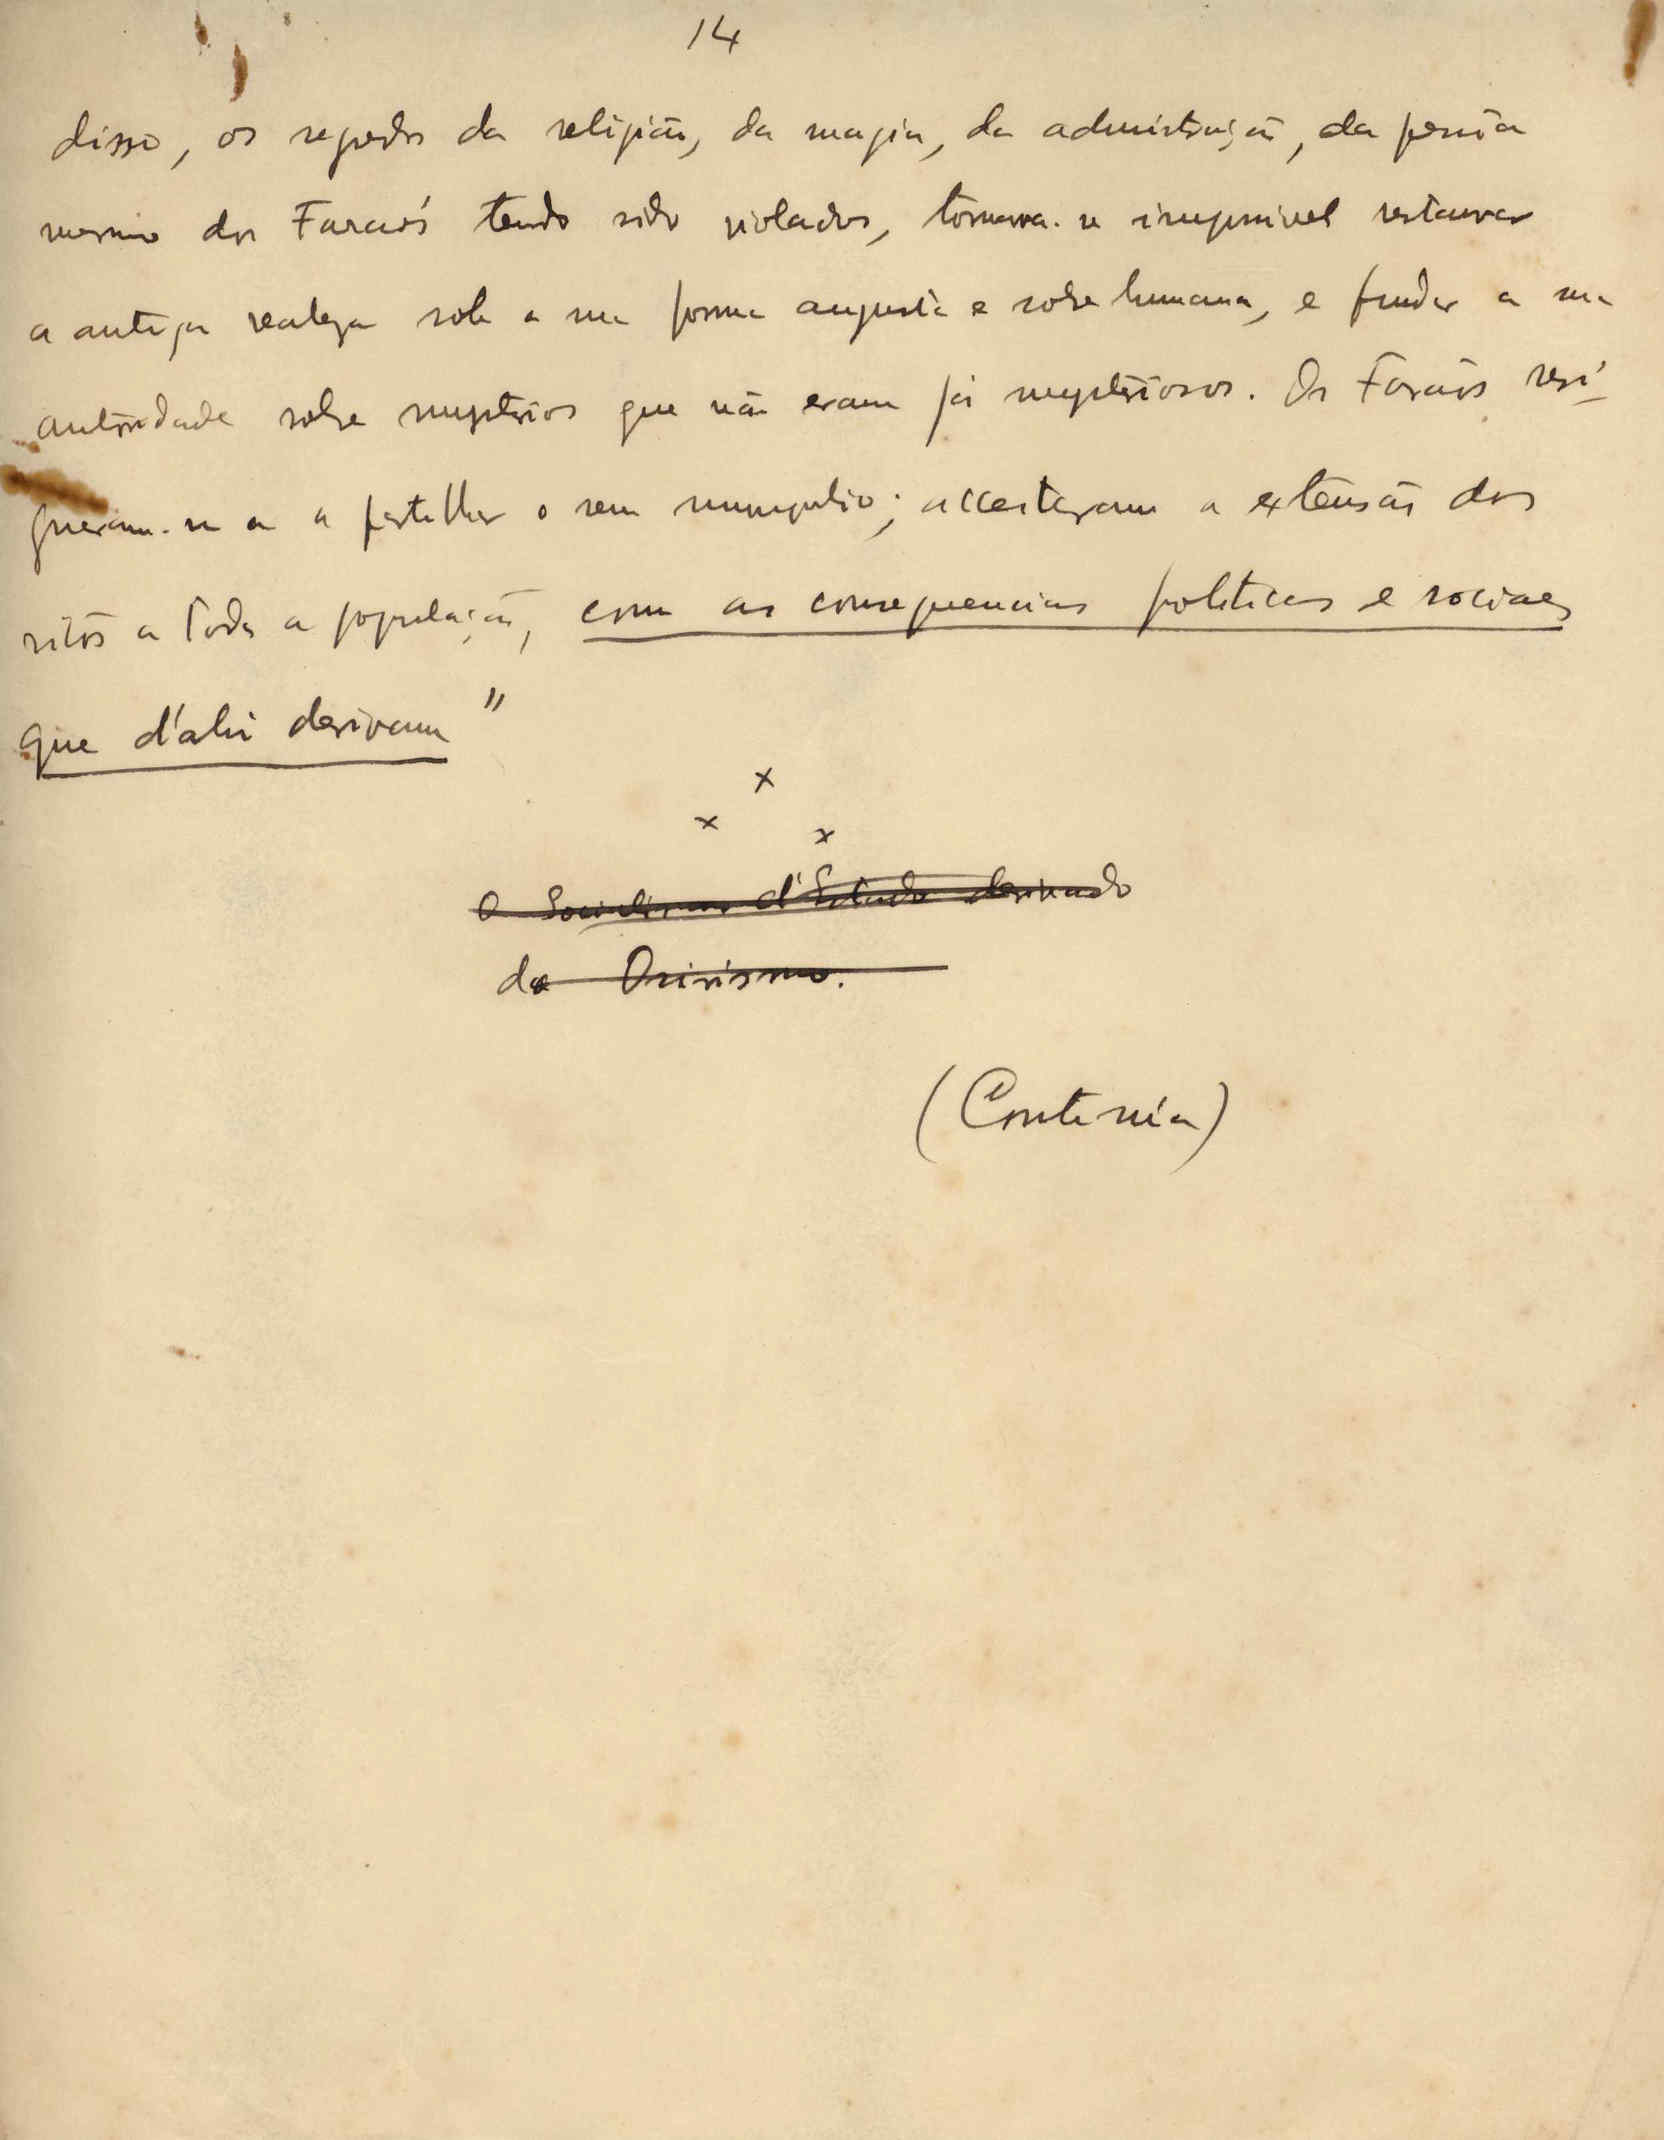 14
disso, os segredos da religião, da magia, da administração, da pessôa
mesmo dos Faraós tendo sido violados, tornava-se impossivel restaurar
a antiga realeza sob a sua forma augusta e sobrehumana, e fundar a sua
autoridade sobre mysterios que não eram já mysteriosos. Os Faraós resi-
gnaram-se a partilhar o seu monopolio; acceitaram a extensão dos
ritos a toda a população, com as consequencias politicas e sociaes
que d'ahi derivam"
x
x x
O Socialismo d'Estado derivado
do Osirismo.
(Continúa)